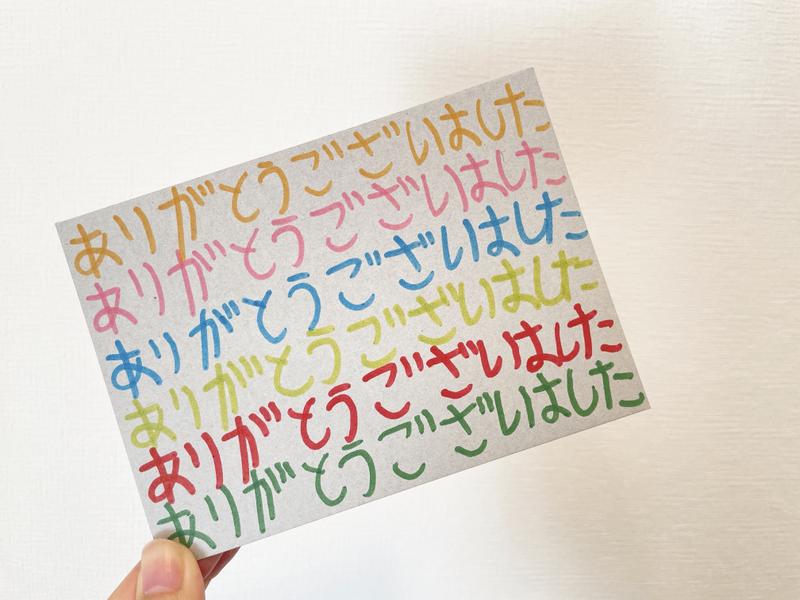 ありがとうございました
ありがとうございました
ありがとうございました
ありがとうございました
ありがとうございました
ありがとうございました